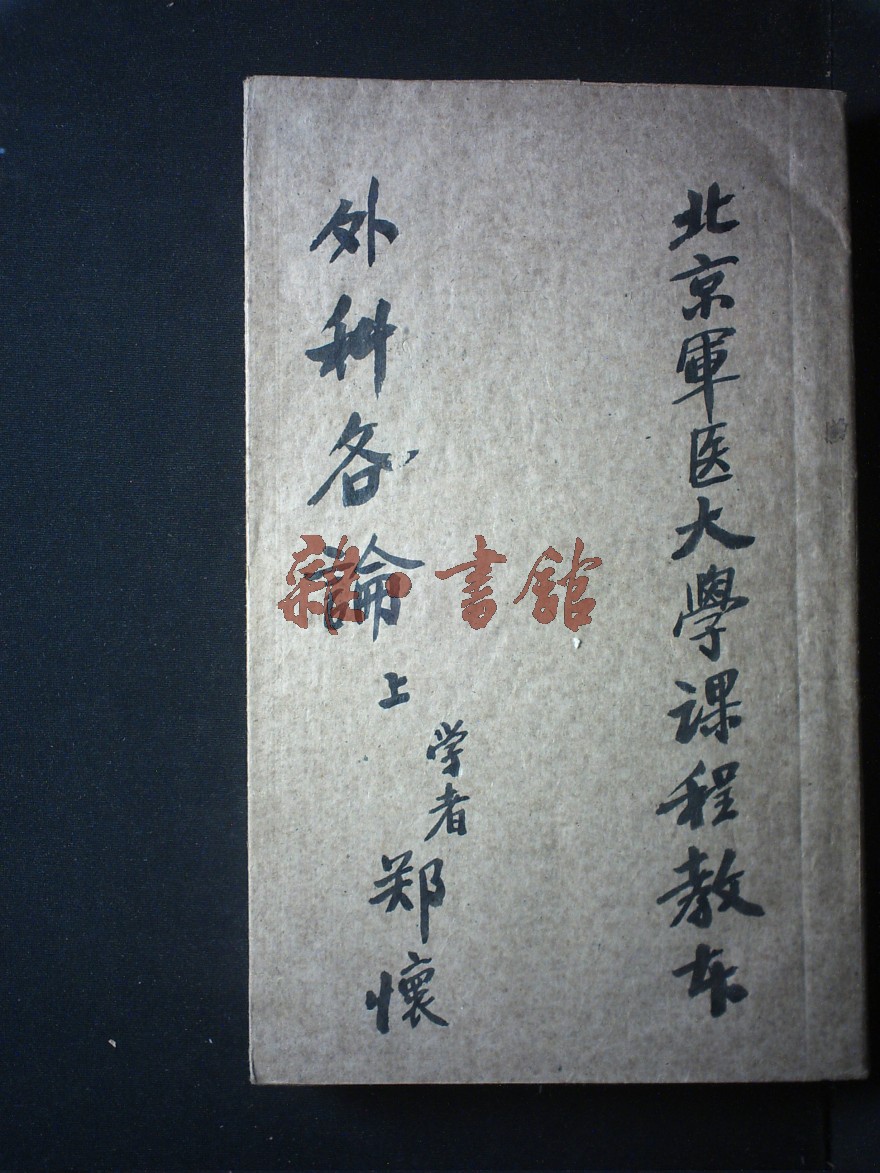 北京軍医大學课程教本
外科各論上
学者郑懷
雜·書館